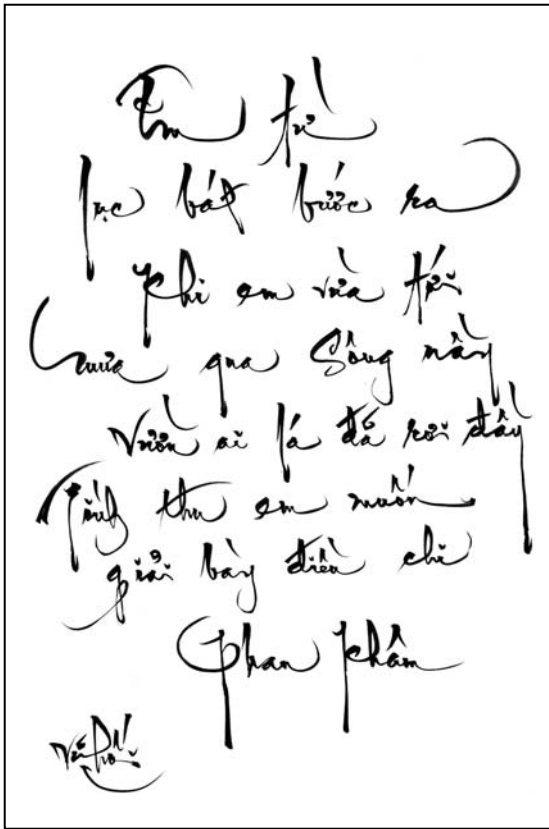 Em từ
lục bát bước ra
Khi em vừa tới
Mưa qua Sông nầy
Vườn ai lá đã rơi đầy
Tiếng thu em muốn
giải bày điều chi
Phan Khâm